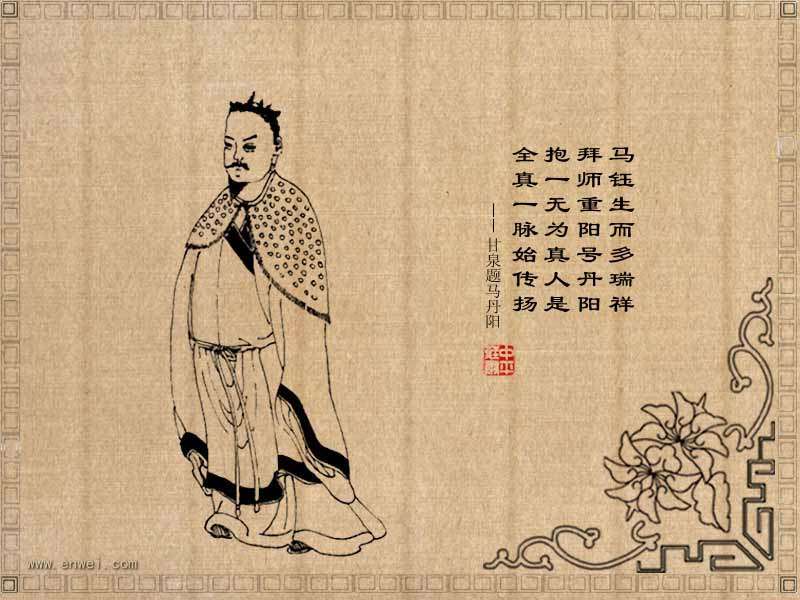 马钰生而多瑞祥
拜师重阳号丹阳
抱一无为真人是
全真一脉始传扬
——甘泉题马丹阳
www.enwei.com